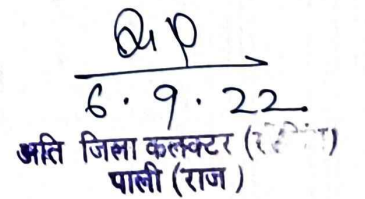 6.9.22
अति जिला कलक्टर
पाली (राज)